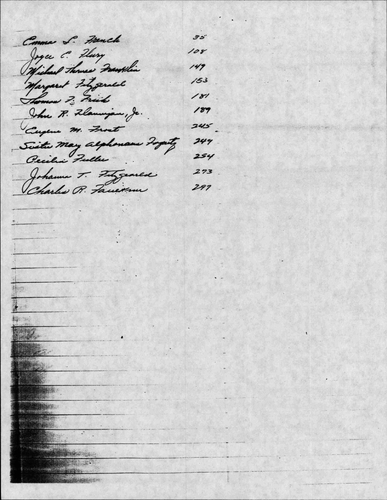 Emma L. French 35
Joyce C. Flury 108
Michael Thomas Franklin 149
Margaret Fitzgerald 153
Thomas F. Frish 181
John R. Flannigan, Jr. 189
Eugene M. Frost 245
Sister Mary Alphonsus Fogerty 247
Cecilia Fuller 254
Johanna T. Fitzgerald 273
Charles R. 297